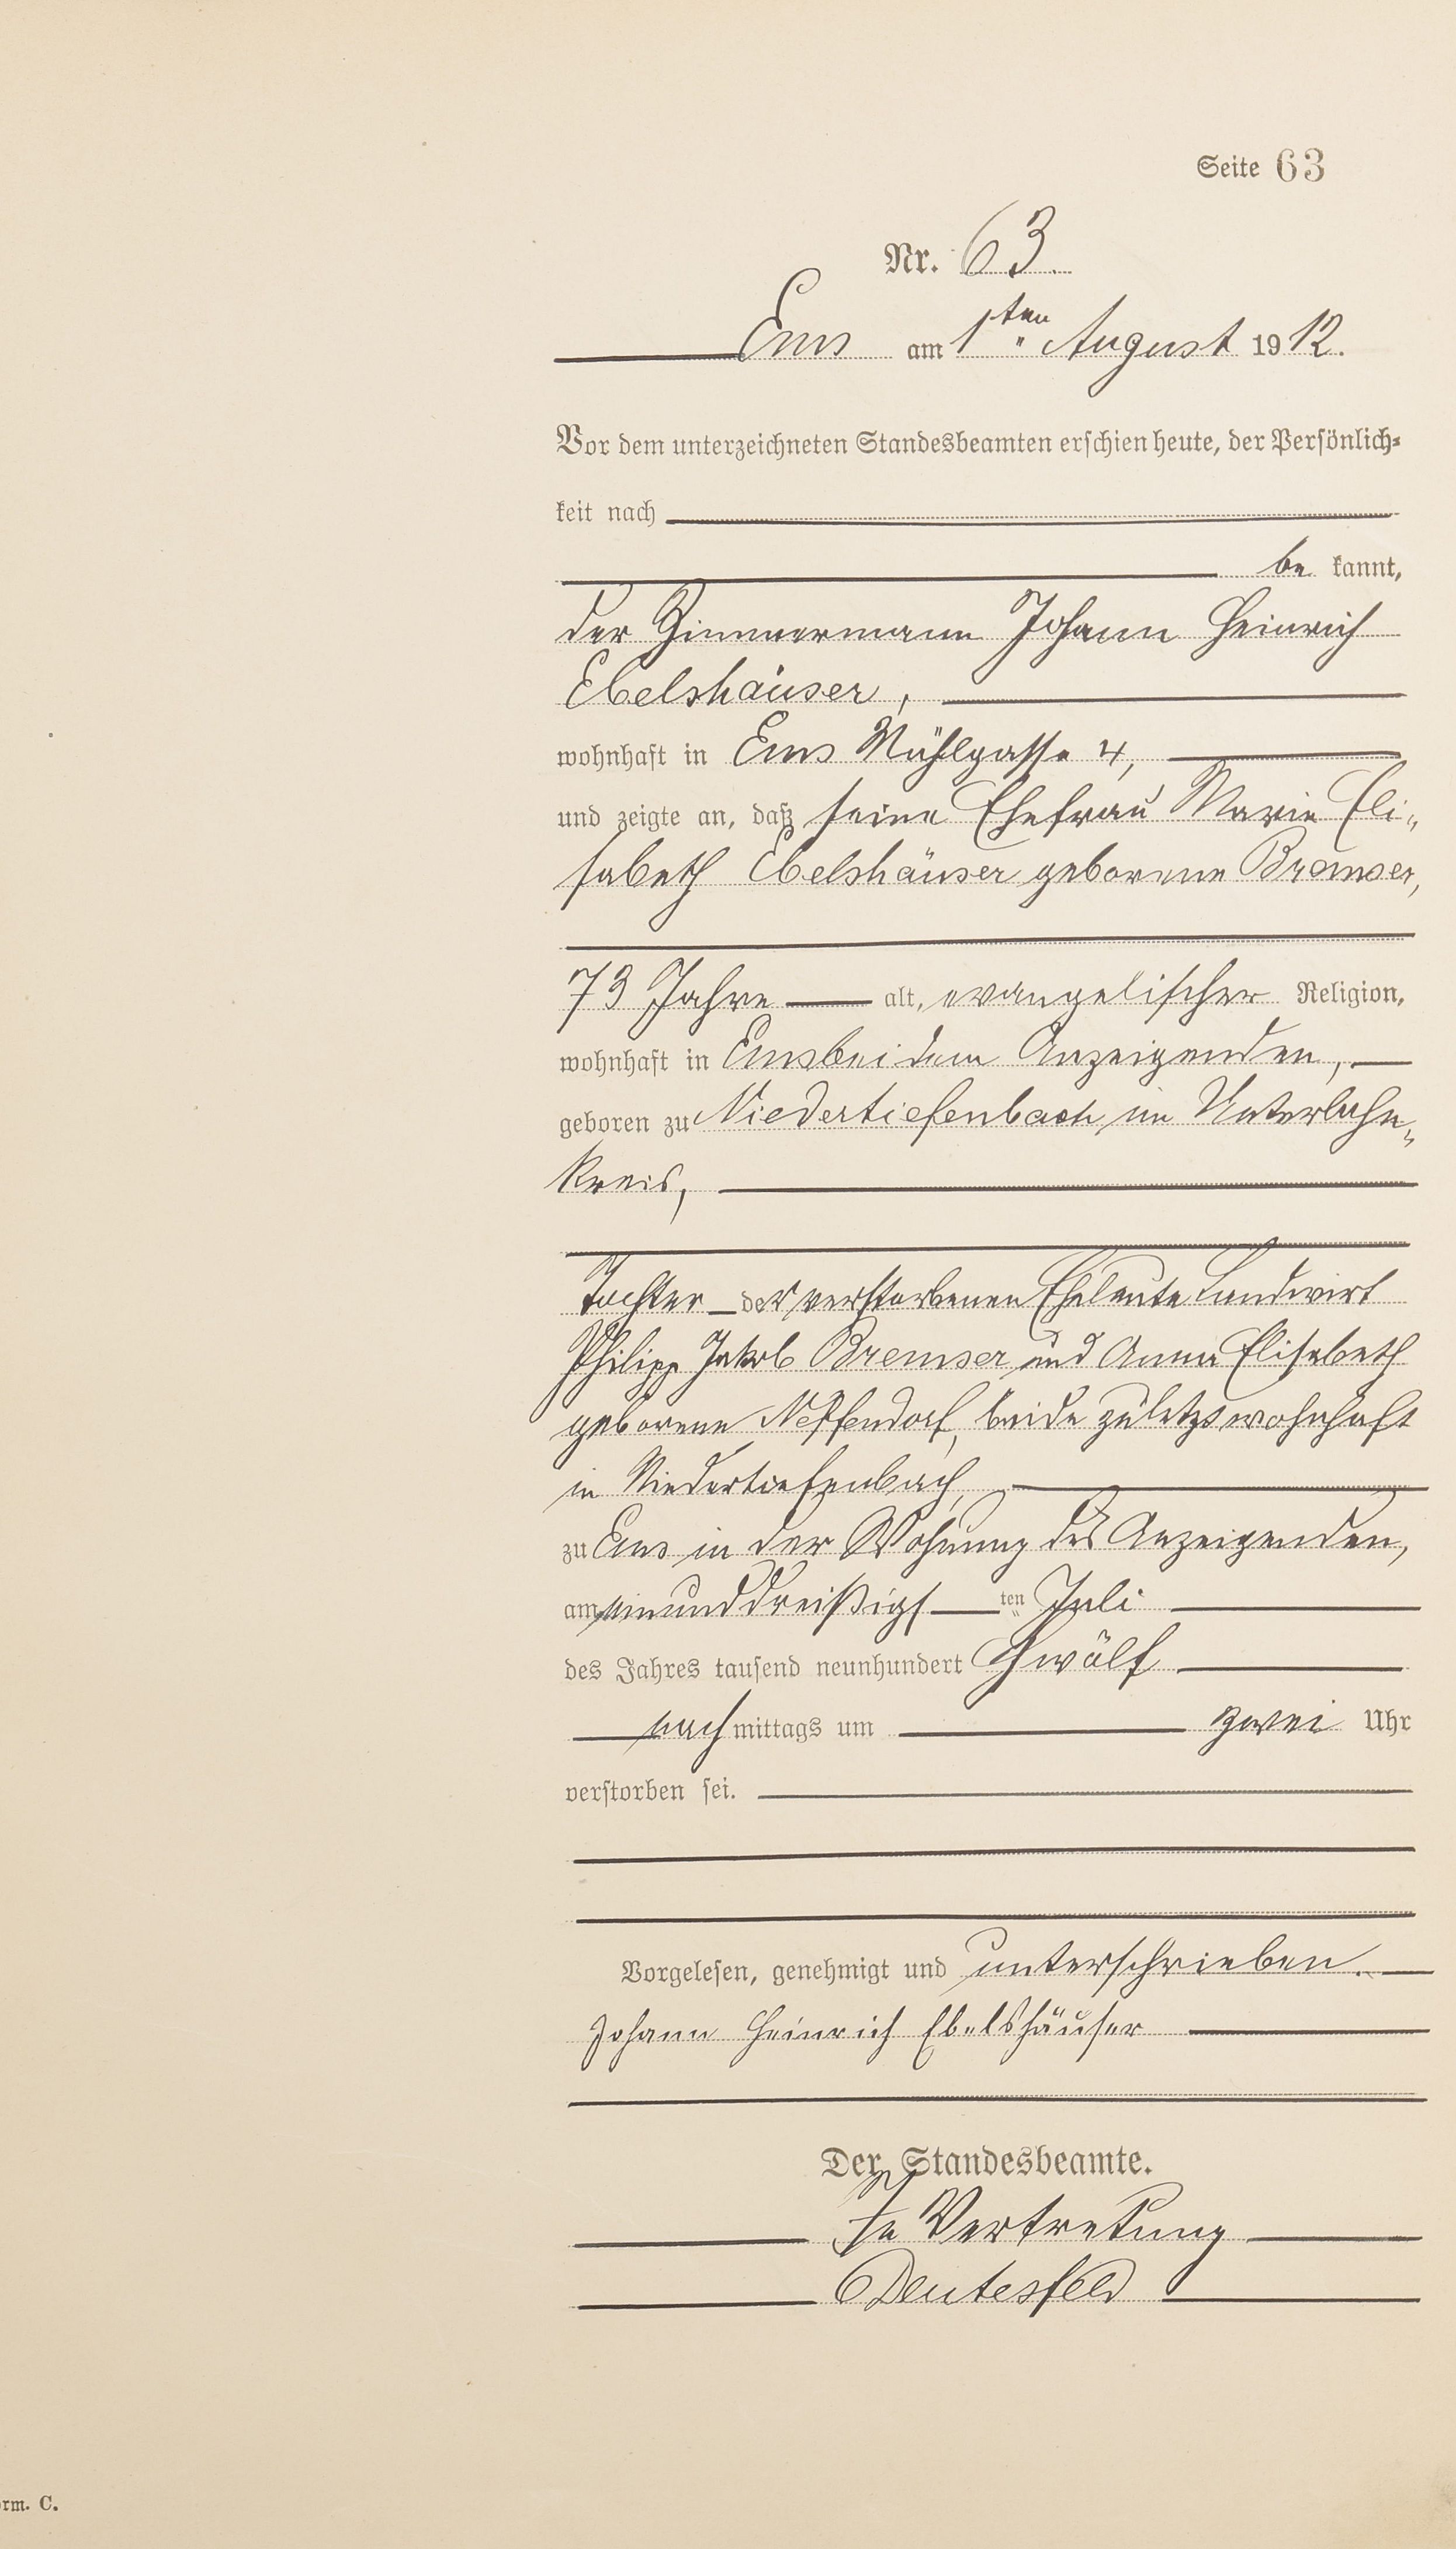 Seite 63
Nr. 63.
Ems am 1ten August 1912.
Vor dem unterzeichneten Standesbeamten erschien heute, der Persönlich-
keit nach
be kannt,
der Zimmermann Johann Heinrich
Ebelshäuser,
wohnhaft in Ems Mühlgasse 4,
und zeigte an, daß seine Ehefrau Marie Eli-
sabeth Ebelshäuser geborene Bremser,
73 Jahre alt, evangelischer Religion,
wohnhaft in Ems bei dem Anzeigenden,
geboren zu Niedertiefenbach im Unterlahn-
kreis,
Tochter der verstorbenen Eheleute Landwirt
Philipp Jakob Bremser und Anna Elisabeth
geborene beide zuletzt wohnhaft
in Niedertiefenbach,
zu Ems in der Wohnung des Anzeigenden,
am einunddreißigs ten Juli
des Jahres tausend neunhundert zwölf
nach mittags um zwei Uhr
verstorben sei.
Vorgelesen, genehmigt und unterschrieben.
Johann Heinrich Ebelshäuser
Der Standesbeamte.
In Vertretung
Deutesfeld
orm. C.